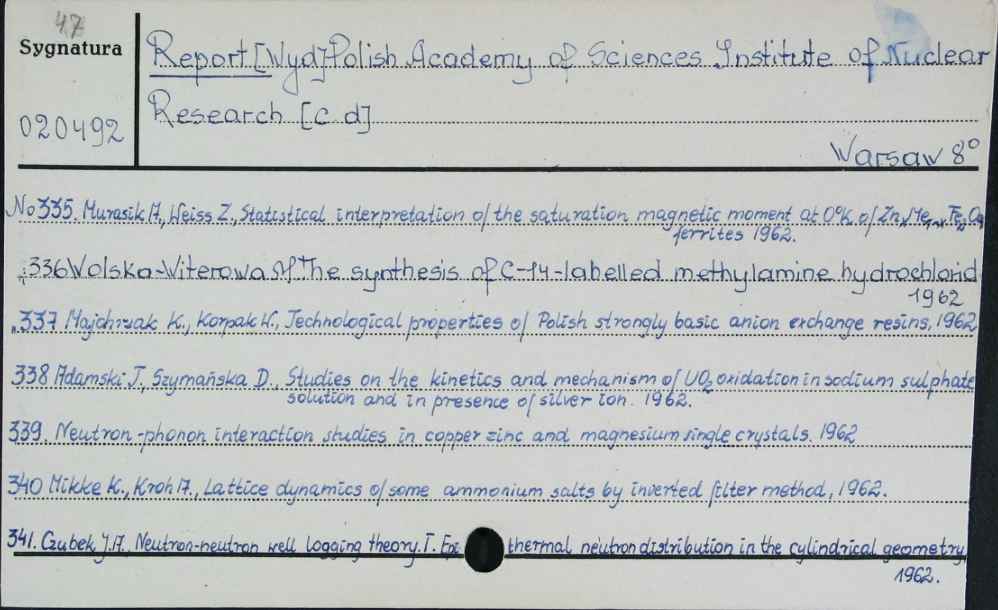 47
Sygnatura
020492
Report [Wyd] Polish Academy of Sciences Institute of Nuclear
Research [c d]
Warsaw 8°
No 335. Murasik A., Weiss Z., Statistical interpretation of the saturation magnetic moment at 0°K of
ferrites 1962.
336 Wolska-Witerowa M The synthesis of C-14-labelled methylamine hydrochlorid
1962
337 Majchrzak K., Korpak W., Technological properties of Polish strongly basic anion exchange resins, 1962
338 Adamski J., Szymańska D., Studies on the kinetics and mechanism of UO2 oxidation in sodium sulphate
solution and in presence of silver ion. 1962.
339. Neutron-phonon interaction studies in copper zinc and magnesium single crystals. 1962
340 Mikke K., Kroh A., Lattice dynamics of some ammonium salts by inverted filter method, 1962.
341. Czubek J.A. Neutron-neutron well logging theory. I. thermal neutron distribution in the cylindrical geometry,
1962.